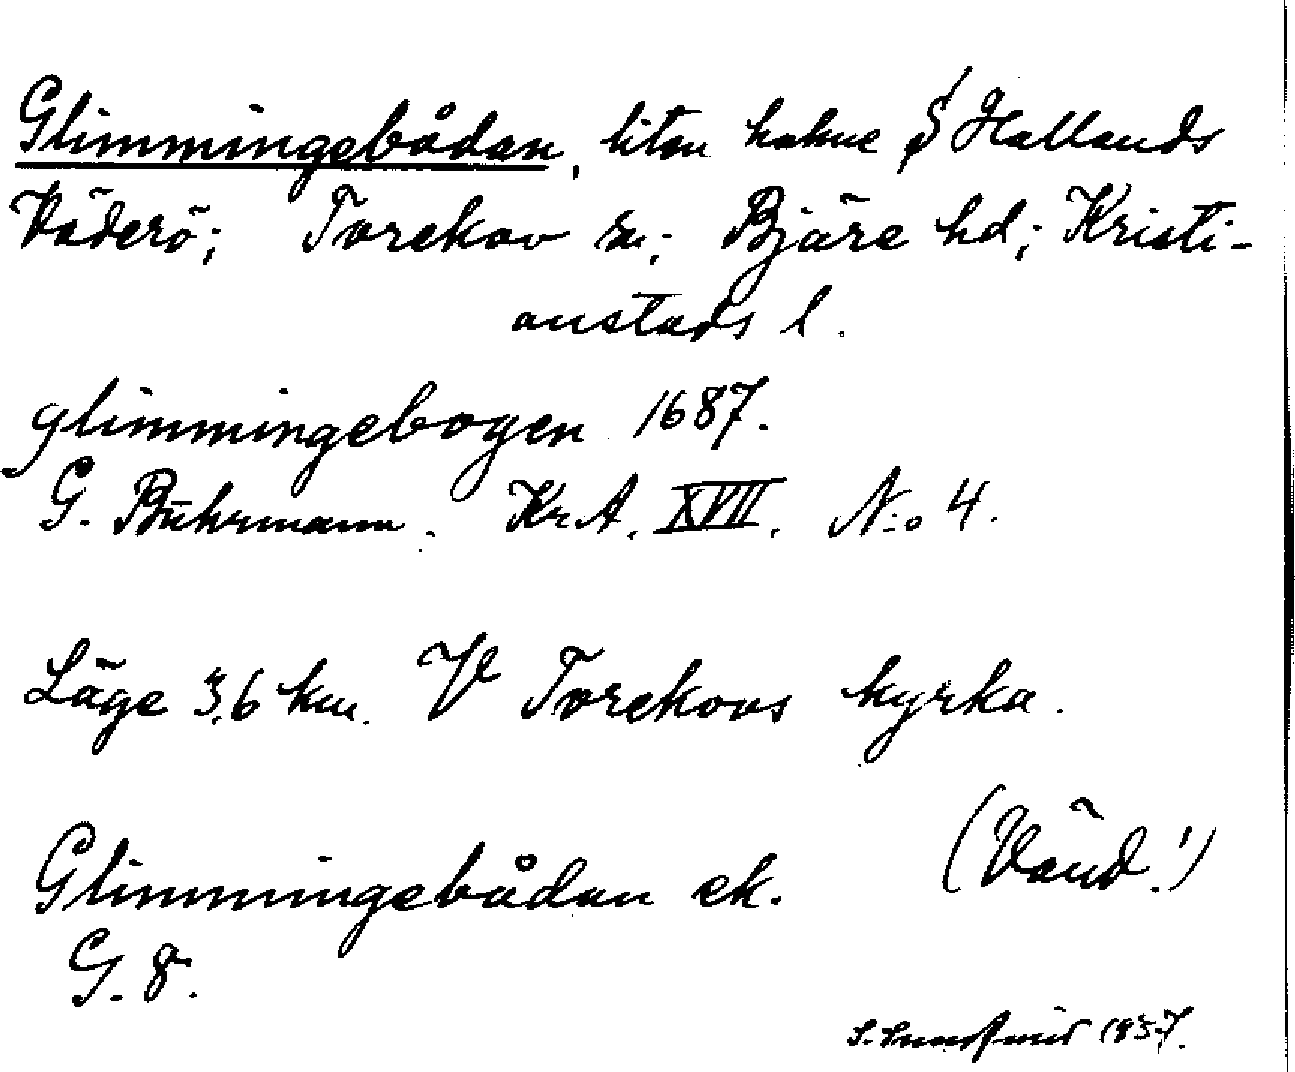 Glimmingebådan, liten holme S Hallands
Väderö; Torekov sn; Bjäre hd; Kristi-
anstads l.
glimmingebogen 1687.
G. Buhrmann. Kr.A. XVII. N:o 4.
Läge 3,6 km. V Torekovs kyrka.
(Vänd!)
Glimmingebådan ek.
G. 8.
S. 1937.